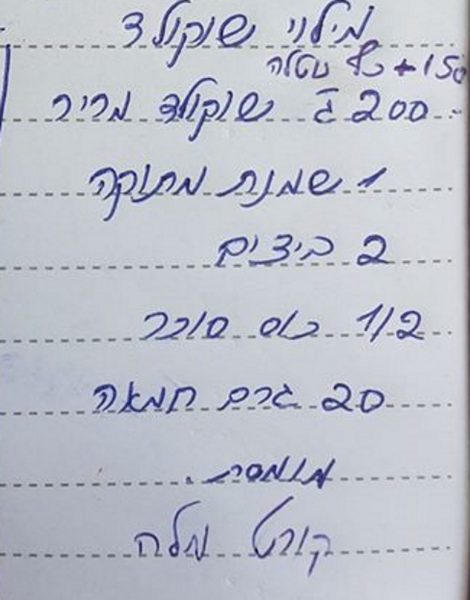 מילוי שוקולד
150 + כף נוטלה
200 ג' שוקולד מריר
1 שמנת מתוקה
2 ביצים
1/2 כוס סוכר
20 גרם חמאה
מומסת.
קורט מלח